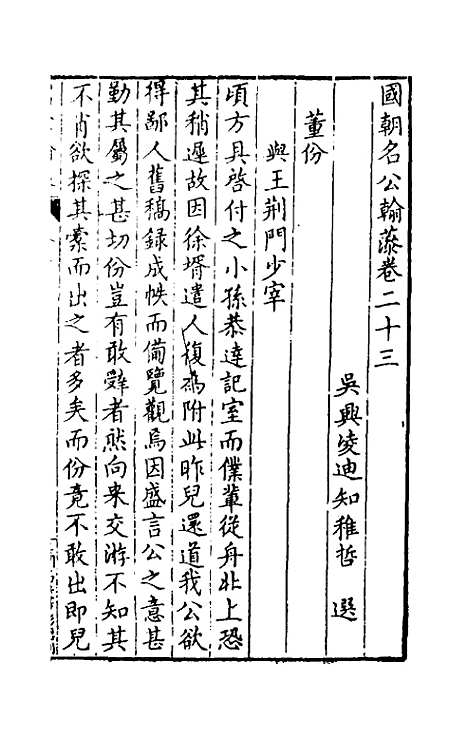 國朝名公翰藻卷二十三
吳興凌迪知稚哲 選
董份
與王荆門少宰
頃方具啓付之小孫恭達記室而僕輩從舟北上恐
其稍遲故因徐壻遣人復爲附此昨兒還道我公欲
得鄙人舊稿錄成帙而備覽觀焉因盛言公之意甚
勤其屬之甚切份豈有敢辭者然向來交游不知其
不肖欲探其橐而出之者多矣而份竟不敢出即兒